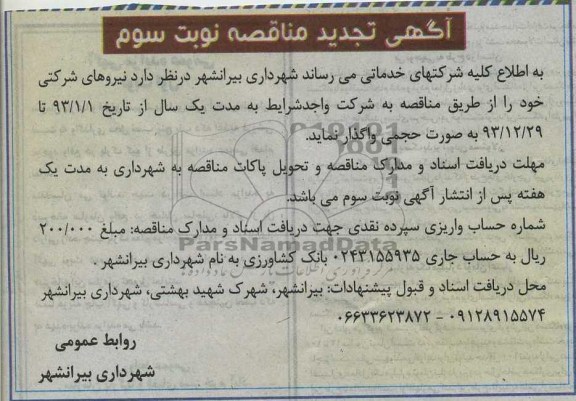 آگهی تجدید مناقصه نوبت سوم
به اطلاع کلیه شرکتهای خدماتی می رساند شهرداری بیرانشهر درنظر دارد نیروهای شرکتی
خود را از طریق مناقصه به شرکت واجدشرایط به مدت یک سال از تاریخ ۹۳/۱/۱ تا
۹۳/۱۲/۲۹ به صورت حجمی واگذار نماید.
مهلت دریافت اسناد و مدارک مناقصه و تحویل پاکات مناقصه به شهرداری به مدت یک
هفته پس از انتشار آگهی نوبت سوم می باشد.
شماره حساب واریزی سپرده نقدی جهت دریافت اسناد و مدارک مناقصه: مبلغ ۲۰۰/۰۰۰
ParsNamadData
ریال به حساب جاری ۰۲۴۳۱۵۵۹۳۵ بانک کشاورزی به نام شهرداری بیرانشهر.
محل دریافت اسناد و قبول پیشنهادات: بیرانشهر، شهرک شهید بهشتی، شهرداری بیرانشهر
۰۹۱۲۸۹۱۵۵۷۴ - ۰۶۶۳۳۶۲۳۸۷۲
روابط عمومی
شهرداری بیرانشهر